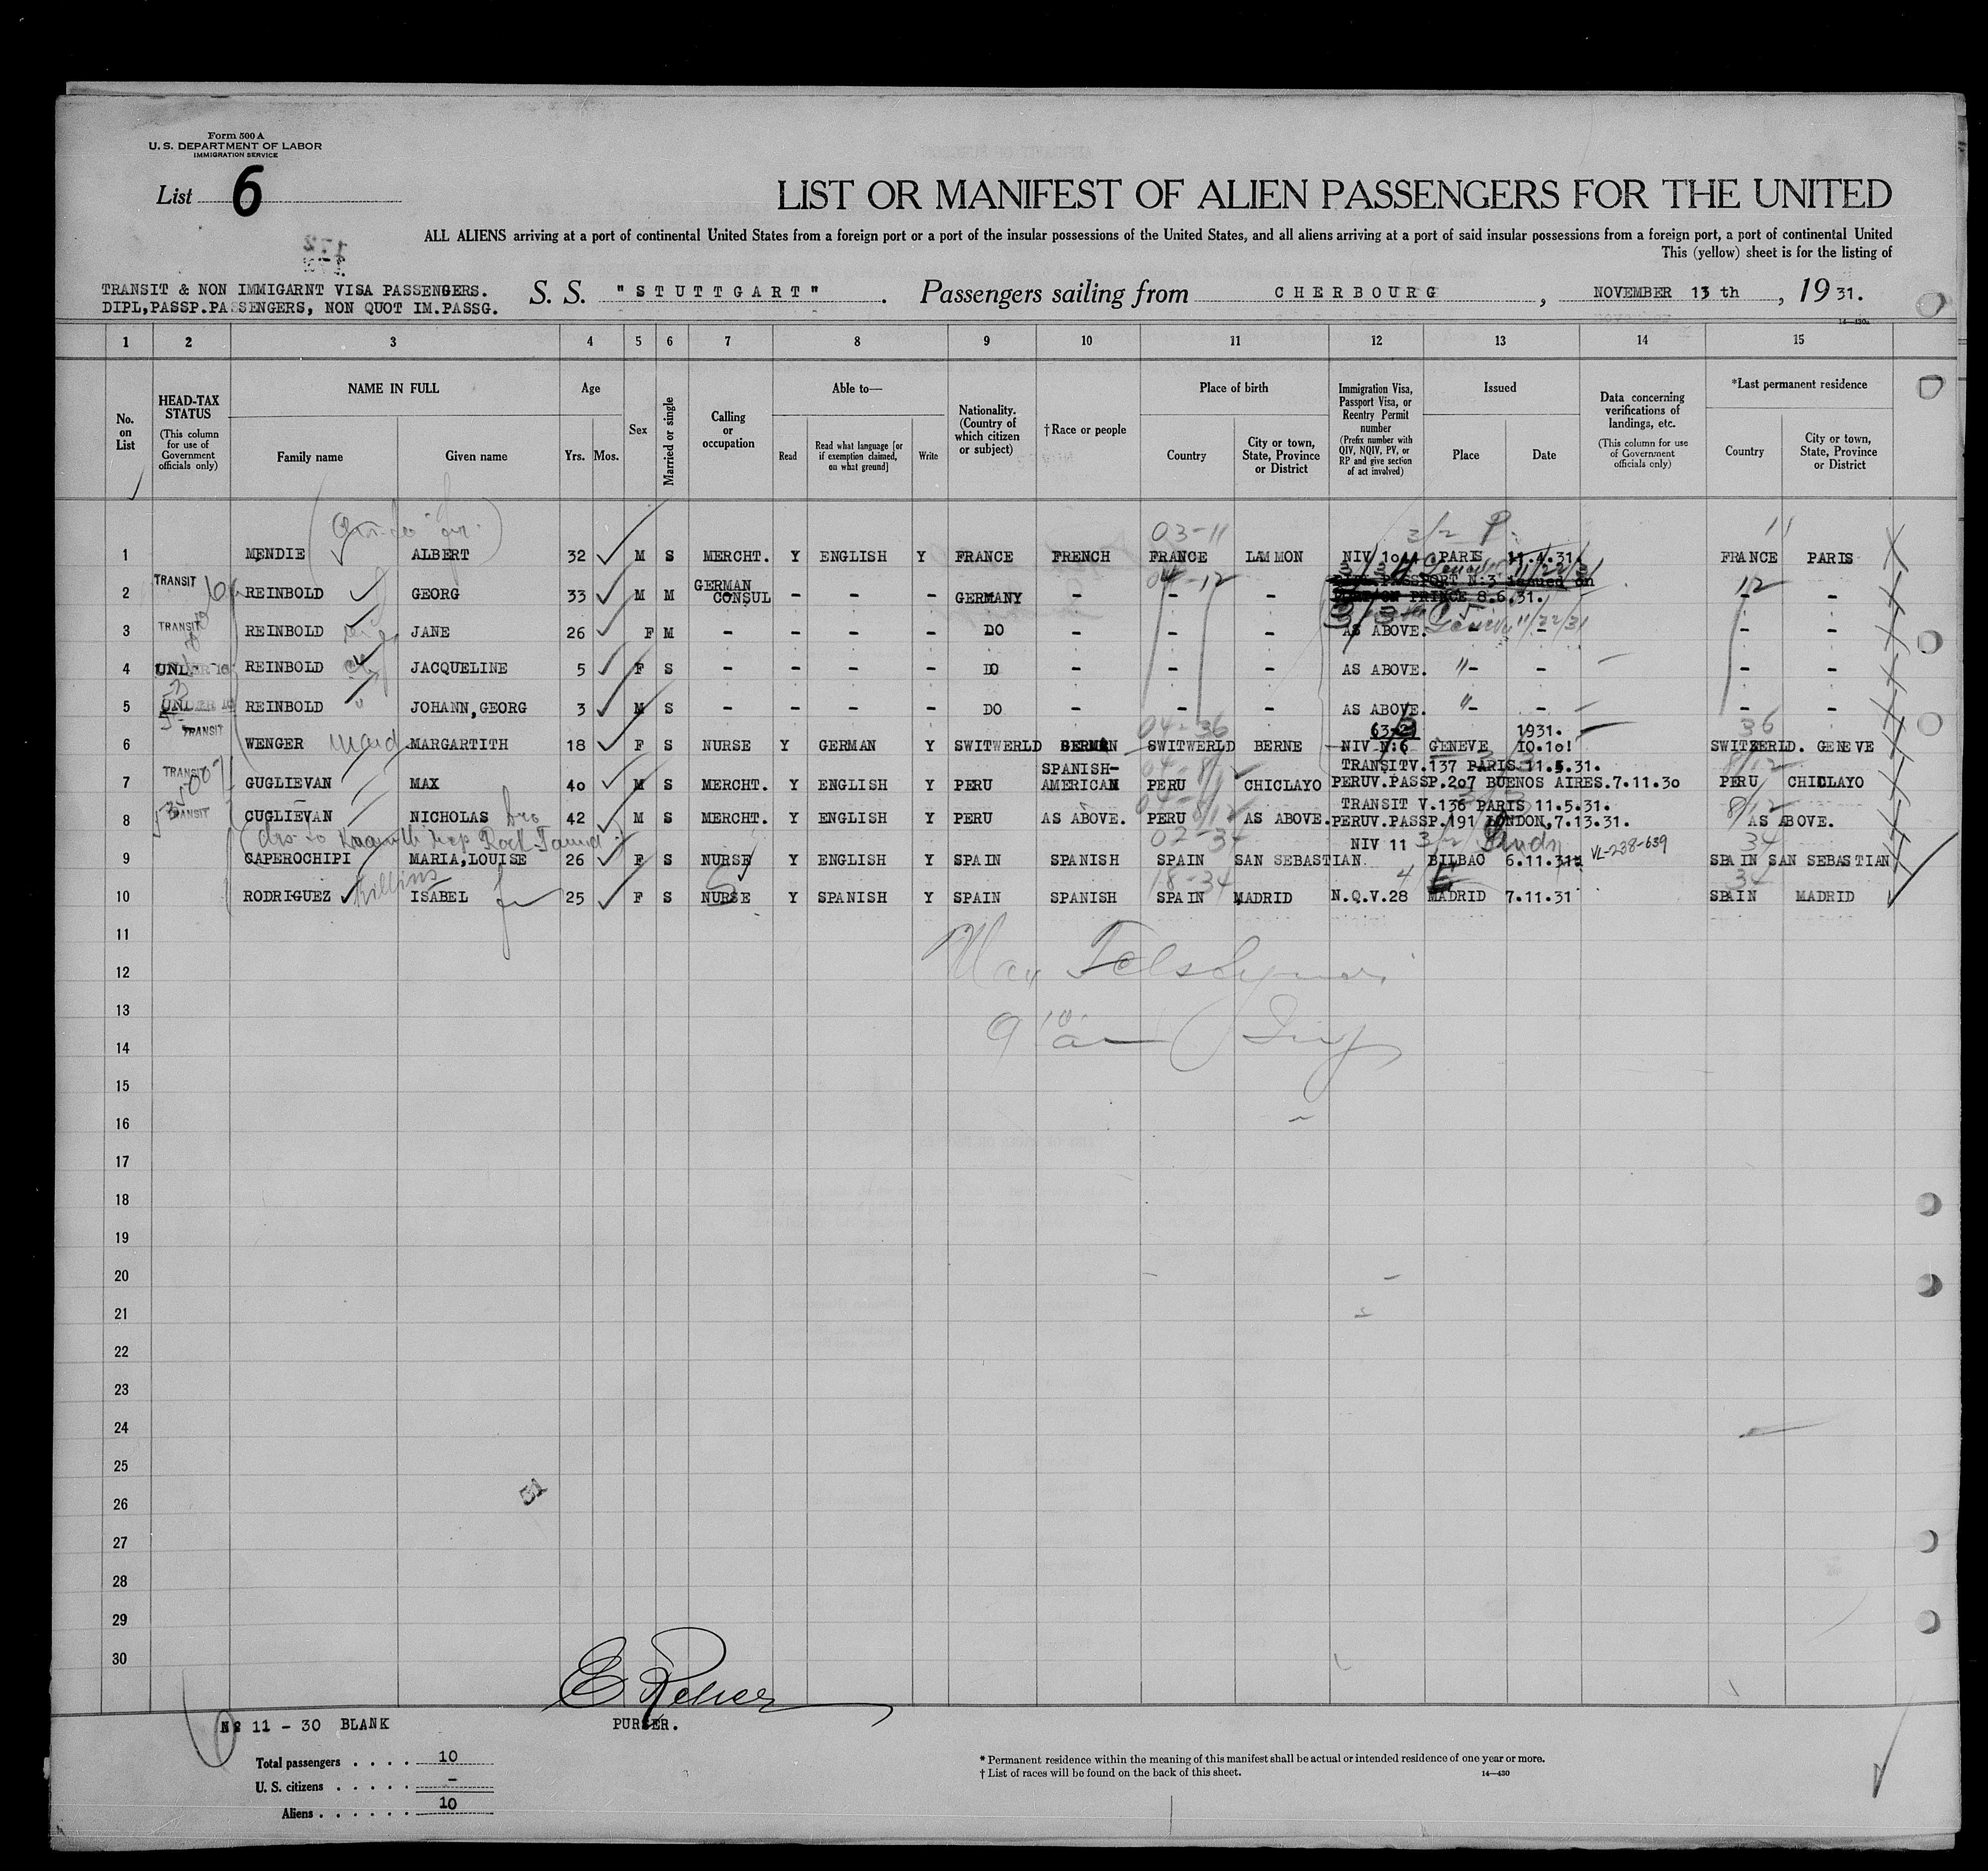 Form 500 A
U. S. DEPARTMENT OF LABOR
IMMIGRATION SERVICE
List 6
LIST OR MANIFEST OF ALIEN PASSENGERS FOR THE UNITED
ALL ALIENS arriving at a port of continental United States from a foreign port or a port of the insular possessions of the United States, and all aliens arriving at a port of said insular possessions from a foreign port, a port of continental United
This (yellow) sheet is for the listing of
TRANSIT & NON IMMIGARNT VISA PASSENGERS.
DIPL,PASSP.PASSENGERS, NON QUOT IM.PASSG.
S. S. "STUTTGART" . Passengers sailing from CHERBOURG , NOVEMBER 13 th , 19 31.
14—430a
1 2 3 4 5 6 7 8 9 10 11 12 13 14 15
No. on List
HEAD-TAX STATUS
(This column for use of Government officials only)
NAME IN FULL
Family name Given name
Age
Yrs. Mos.
Sex
Married or single
Calling or occupation
Able to—
Read
Read what language [or if exemption claimed, on what ground]
Write
Nationality. (Country of which citizen or subject)
†Race or people
Place of birth
Country
City or town, State, Province or District
Immigration Visa, Passport Visa, or Reentry Permit number
(Prefix number with QIV, NQIV, PV, or RP and give section of act involved)
Issued
Place Date
Data concerning verifications of landings, etc.
(This column for use of Government officials only)
*Last permanent residence
Country
City or town, State, Province or District
03-11 3/2 P. 11
1 MENDIE ALBERT 32 M S MERCHT. Y ENGLISH Y FRANCE FRENCH FRANCE LAMMON NIV 1044 PARIS 11.4.31. FRANCE PARIS
04-12 DIPL.PASSPORT N:3 issued on 12
2 TRANSIT REINBOLD GEORG 33 M M GERMAN CONSUL - - - GERMANY - - - PORT ON PRINCE 8.6.31. - -
3 TRANSIT REINBOLD JANE 26 F M - - - - DO - - - AS ABOVE. Geneve 11/22/31 - -
4 UNDER 16 REINBOLD JACQUELINE 5 F S - - - - DO - - - AS ABOVE. "- - - -
5 UNDER 16 REINBOLD JOHANN,GEORG 3 M S - - - - DO - - - AS ABOVE. "- - - -
04-36 1931. 36
6 TRANSIT WENGER Maid MARGARTITH 18 F S NURSE Y GERMAN Y SWITWERLD GERMAN SWITWERLD BERNE NIV N:6 GENEVE 10.10! SWITZERLD. GENEVE
SPANISH- TRANSITV.137 PARIS 11.5.31. 8/12
7 TRANSIT GUGLIEVAN MAX 40 M S MERCHT. Y ENGLISH Y PERU AMERICAN PERU CHICLAYO PERUV.PASSP.207 BUENOS AIRES.7.11.30 PERU CHICLAYO
TRANSIT V.136 PARIS 11.5.31. 8/12
8 TRANSIT CUGLIEVAN NICHOLAS bro 42 M S MERCHT. Y ENGLISH Y PERU AS ABOVE. PERU AS ABOVE. PERUV.PASSP.191 LONDON,7.13.31. AS ABOVE.
02-34 NIV 11 3/2 34
9 CAPEROCHIPI MARIA,LOUISE 26 F S NURSE Y ENGLISH Y SPAIN SPANISH SPAIN SAN SEBASTIAN BILBAO 6.11.31 VL-238-639 SPAIN SAN SEBASTIAN
18-34 4 E 34
10 RODRIGUEZ ISABEL 25 F S NURSE Y SPANISH Y SPAIN SPANISH SPAIN MADRID N.Q.V.28 MADRID 7.11.31 SPAIN MADRID
11
12 Max
13
14
15
16
17
18
19
20
21
22
23
24
25
26
27
28
29
30
Nº 11 - 30 BLANK
PURSER.
Total passengers . . . . 10
U. S. citizens . . . . . -
Aliens . . . . . . 10
* Permanent residence within the meaning of this manifest shall be actual or intended residence of one year or more.
† List of races will be found on the back of this sheet.
14—430